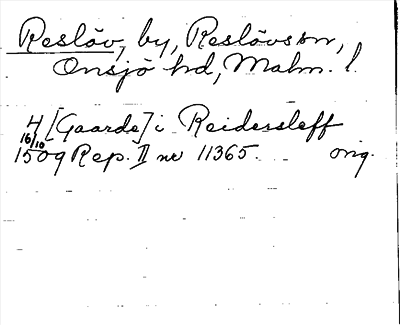 Reslöv, by, Reslövs sn,
Onsjö hd, Malm. l.
H [Gaarde] i Reidersleff
16/10
1509 Rep. II nr 11365. orig.